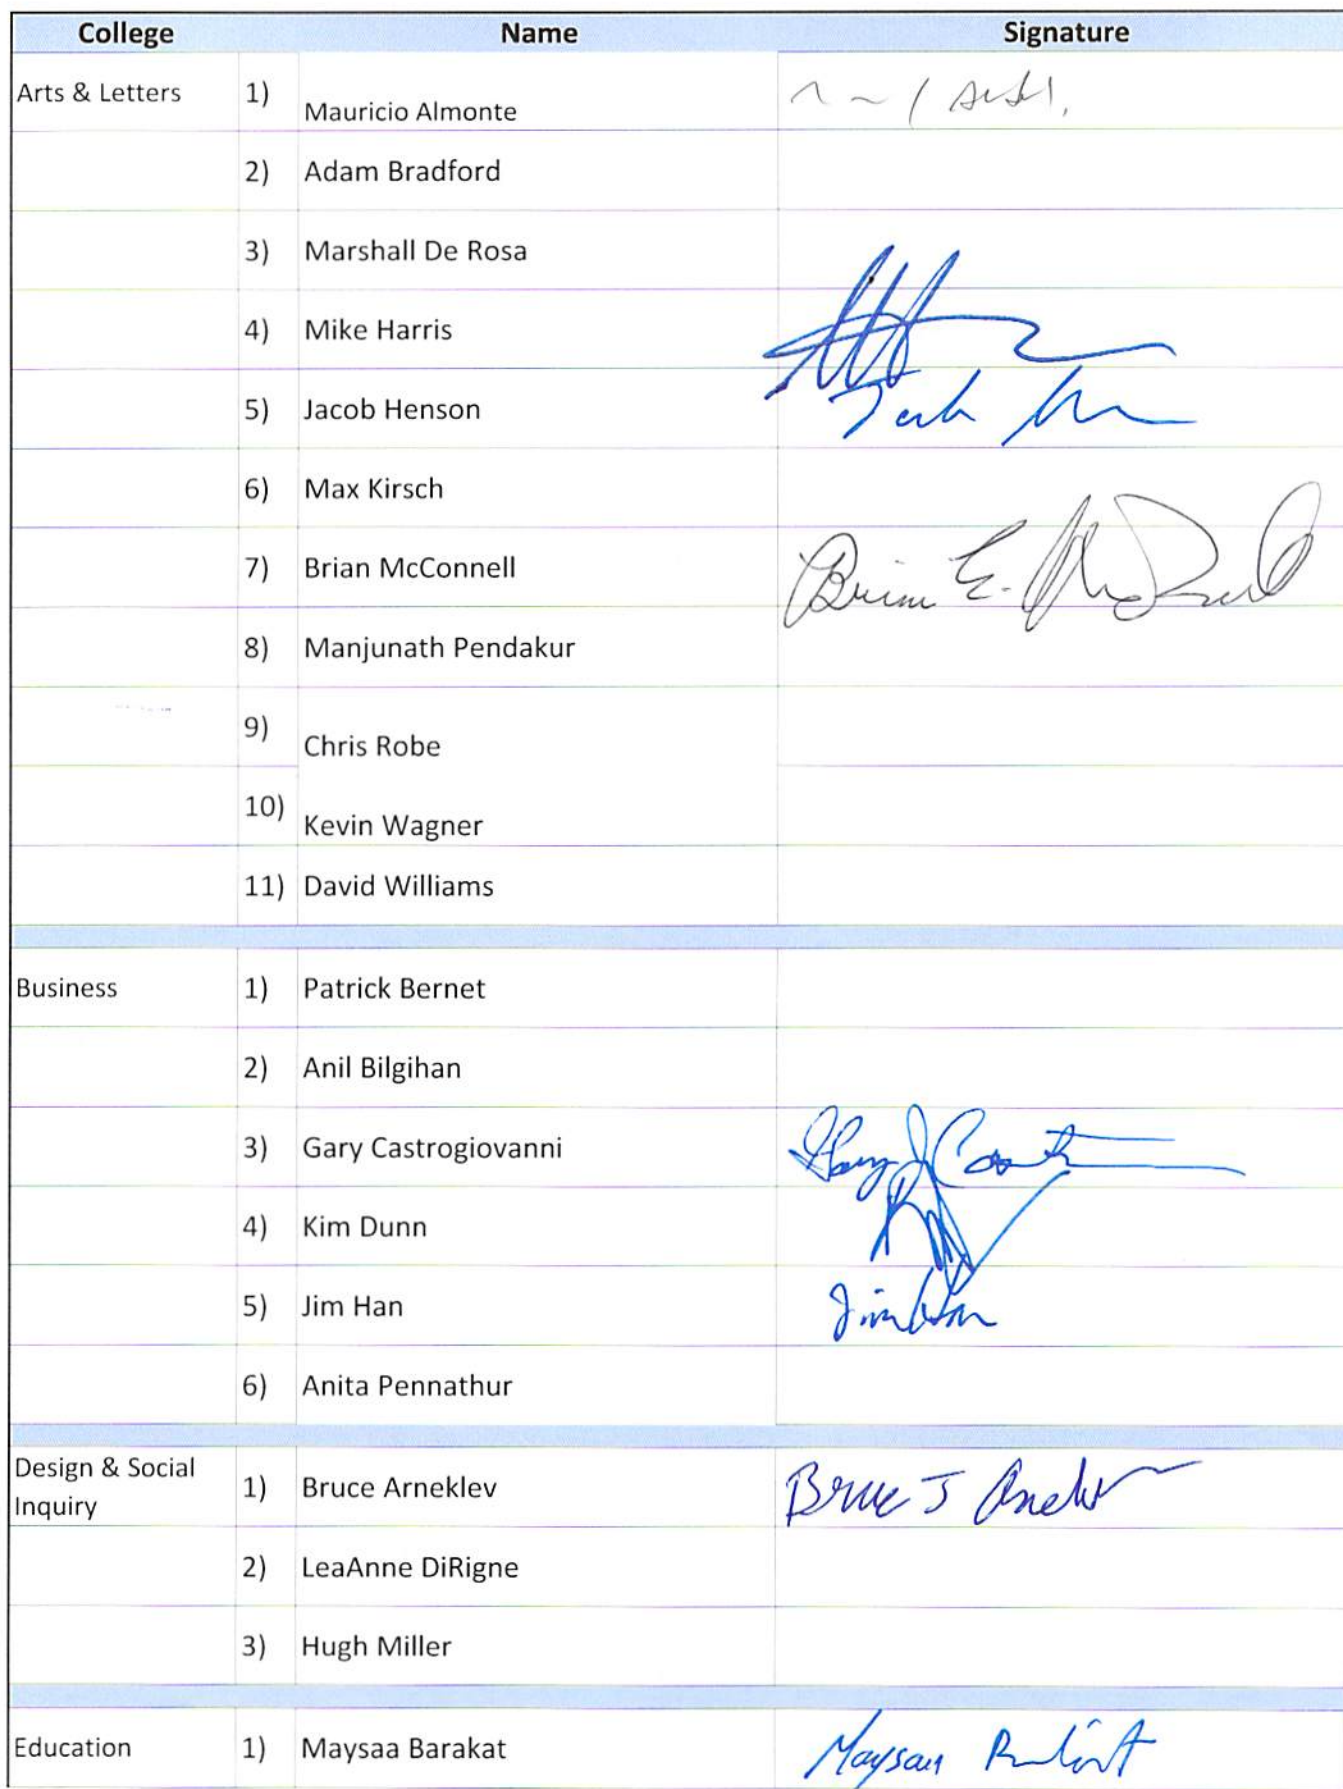 College Name Signature
Arts & Letters 1) Mauricio Almonte
2) Adam Bradford
3) Marshall De Rosa
4) Mike Harris
5) Jacob Henson
6) Max Kirsch
7) Brian McConnell Brian E. McConnell
8) Manjunath Pendakur
9) Chris Robe
10) Kevin Wagner
11) David Williams
Business 1) Patrick Bernet
2) Anil Bilgihan
3) Gary Castrogiovanni Gary J
4) Kim Dunn
5) Jim Han Jim Han
6) Anita Pennathur
Design & Social
Inquiry 1) Bruce Arneklev Bruce J Arneklev
2) LeaAnne DiRigne
3) Hugh Miller
Education 1) Maysaa Barakat Maysaa Barakat